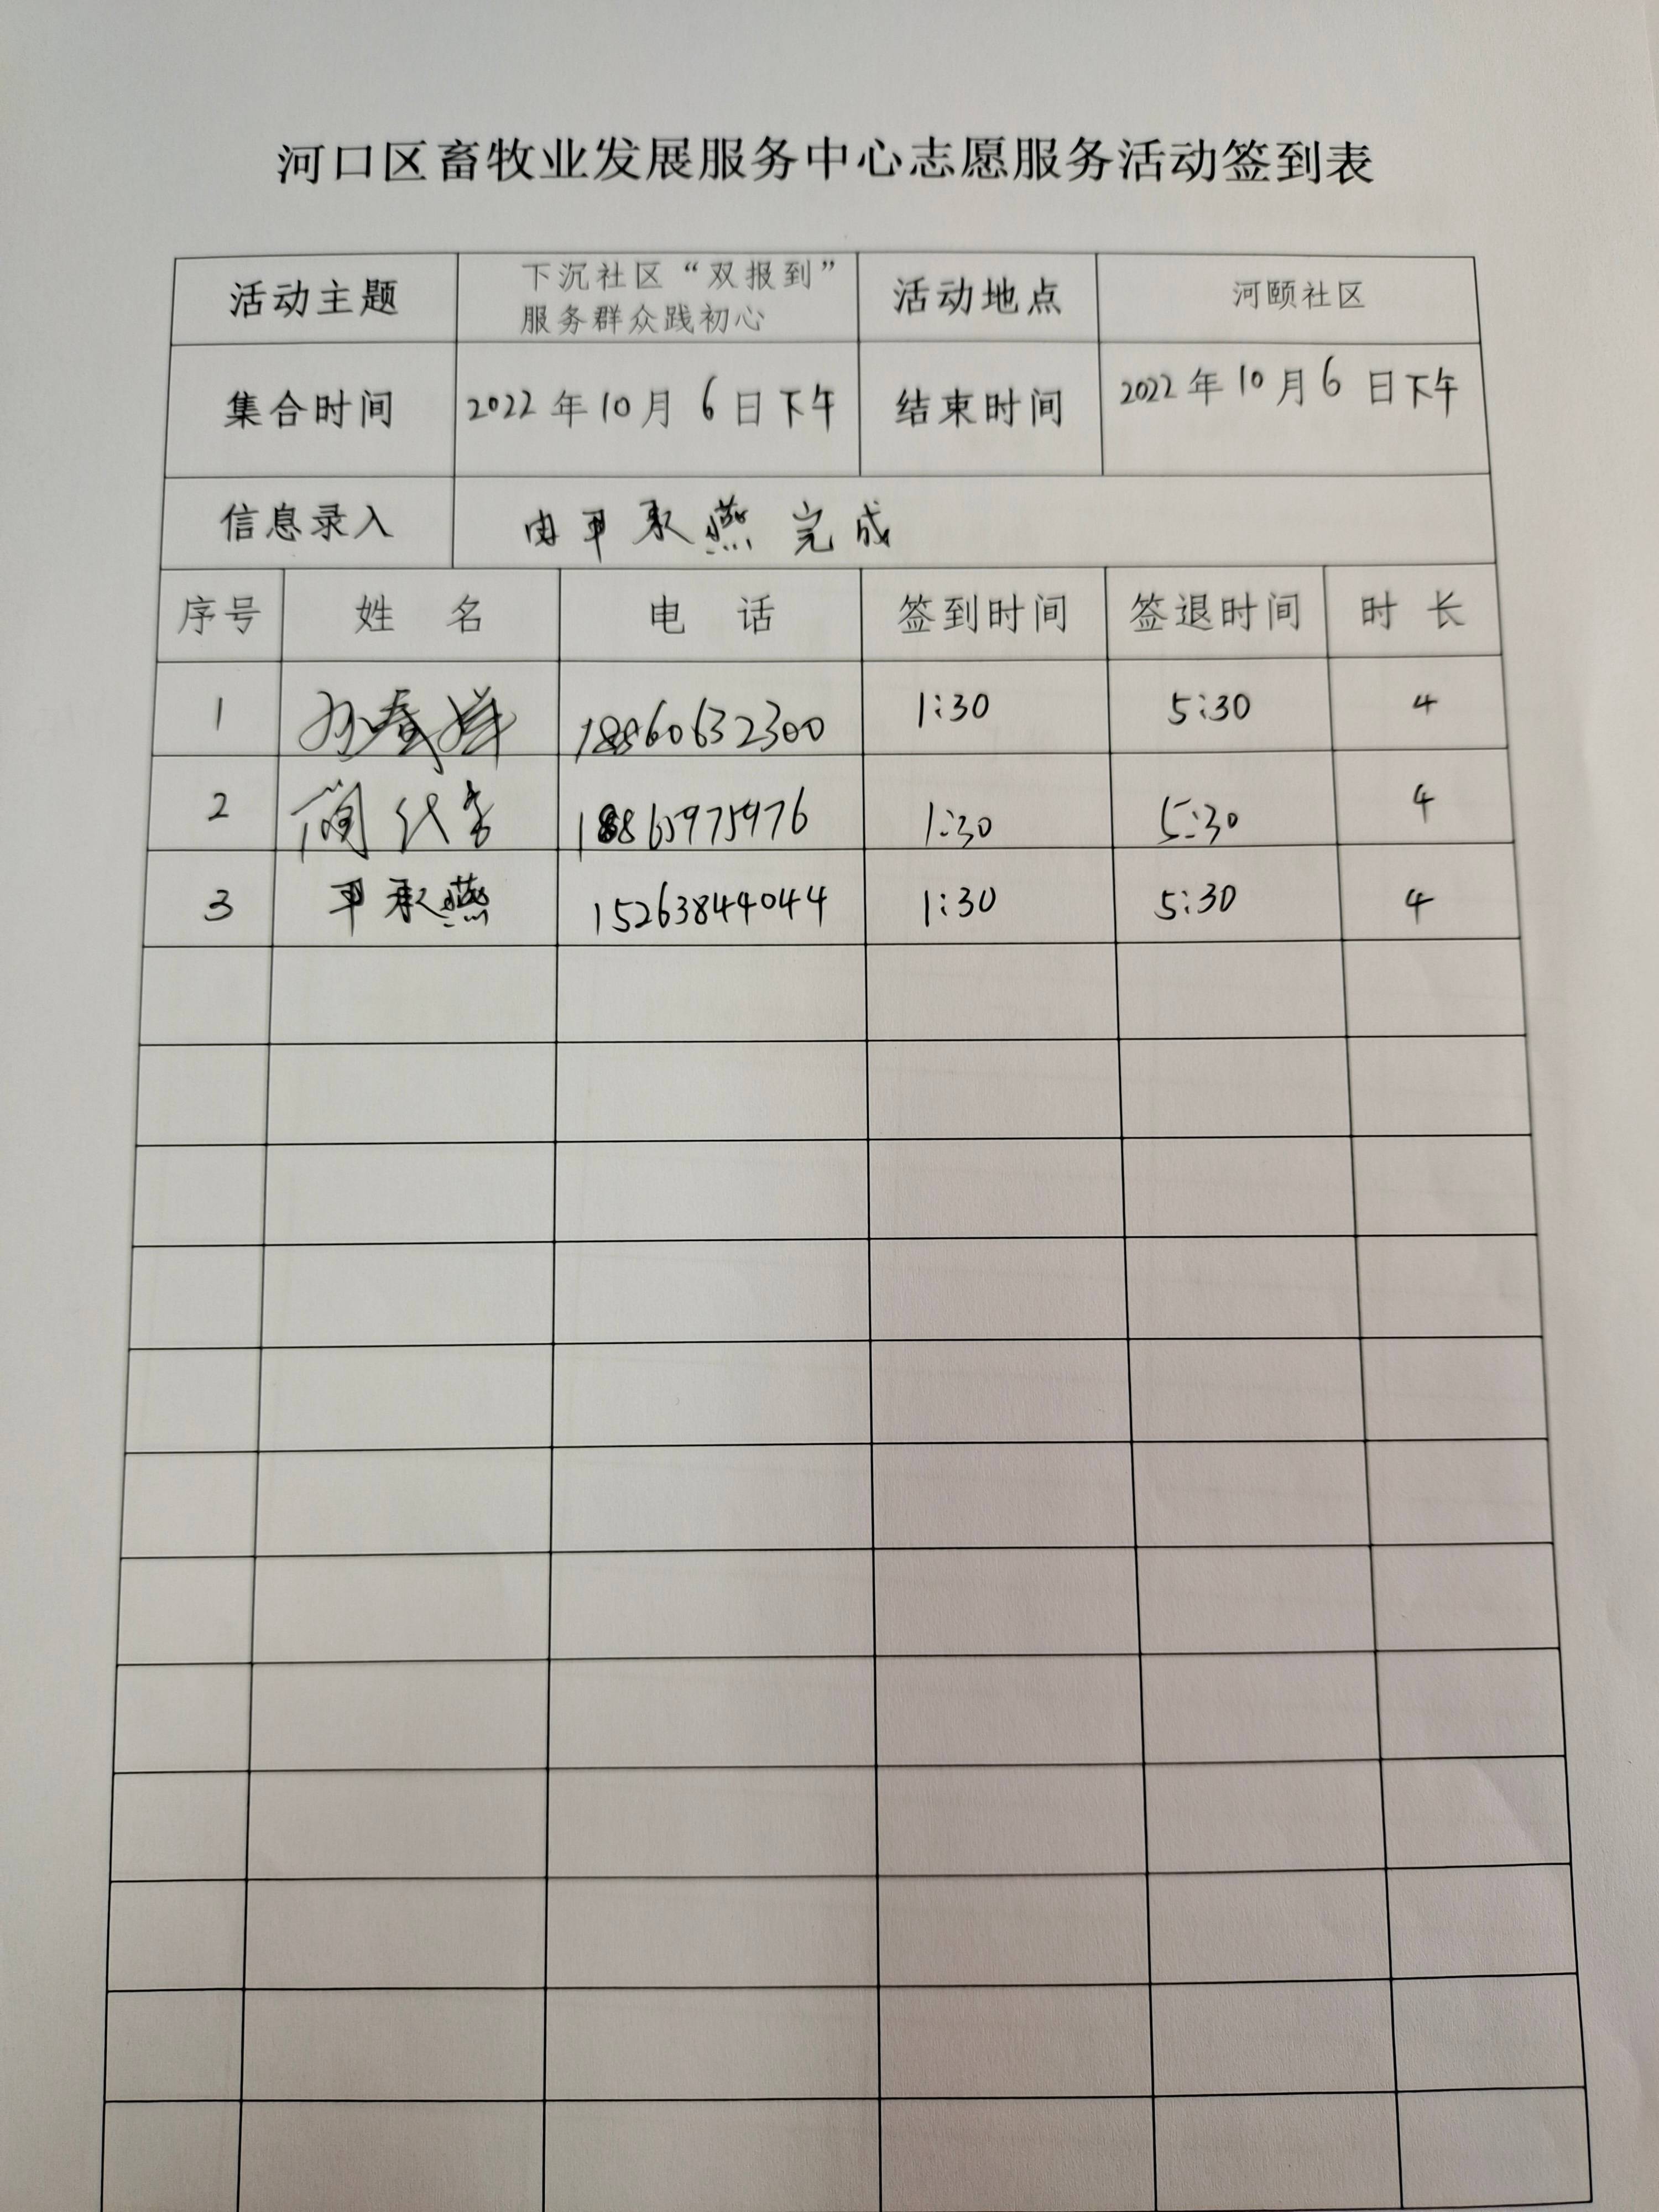 河口区畜牧业发展服务中心志愿服务活动签到表
活动主题 下沉社区“双报到” 活动地点 河颐社区
服务群众践初心
集合时间 2022年10月6日下午 结束时间 2022年10月6日下午
信息录入 由 承燕完成
序号 姓名 电话 签到时间 签退时间 时长
1 18860632300 1:30 5:30 4
2 18865975976 1:30 5:30 4
3 承燕 15263844044 1:30 5:30 4